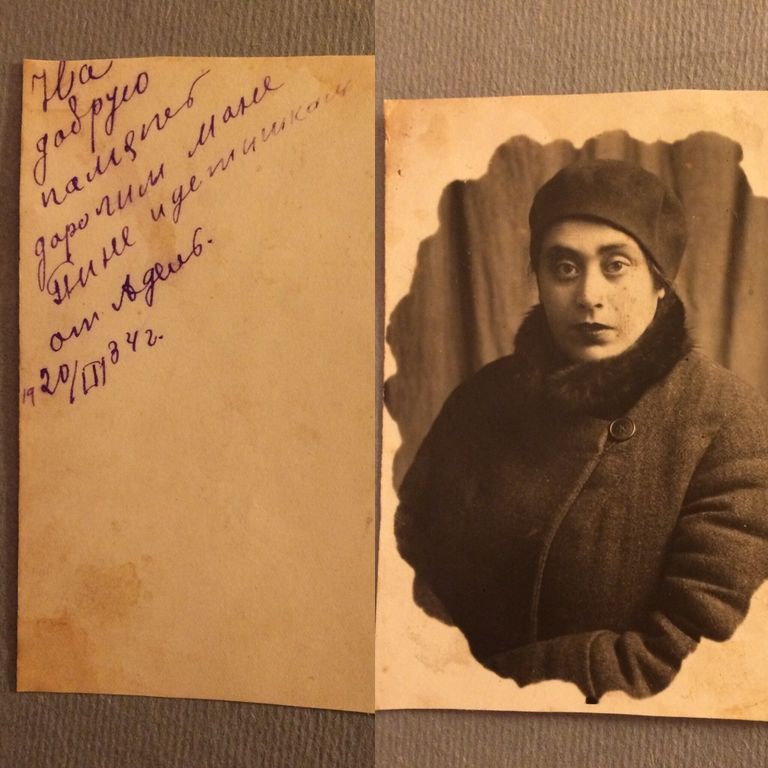 На
добрую
память
дорогим Мане
Пине и детишкам
от Адель.
19 20/III 34 г.